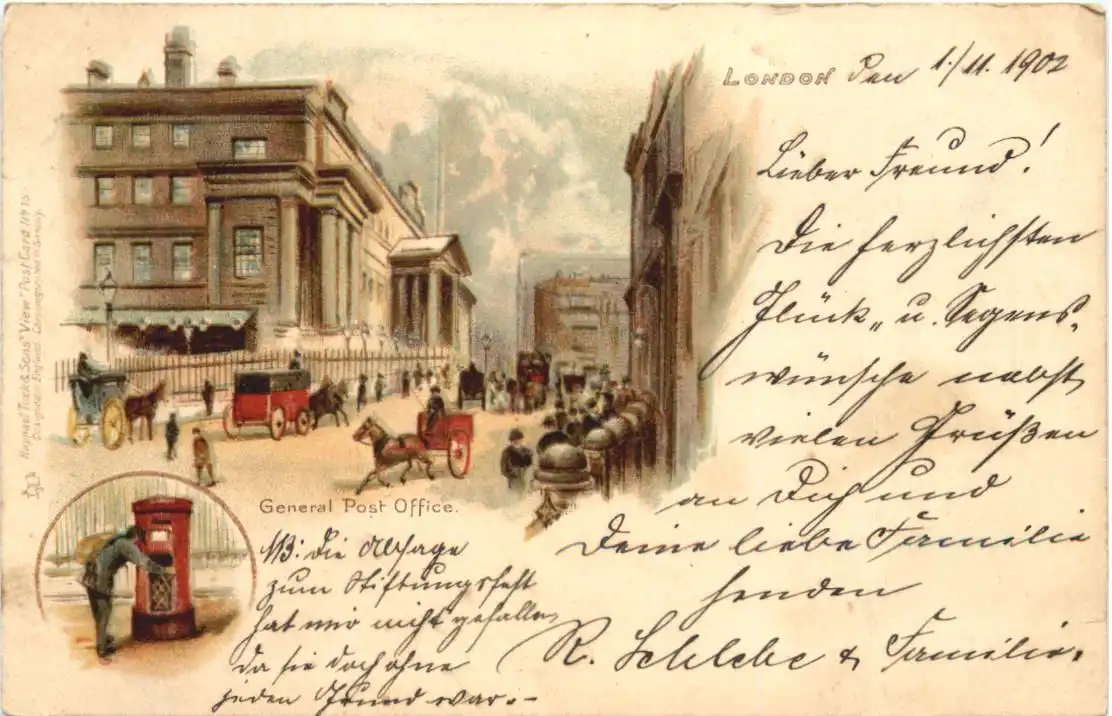 LONDON den 1./11. 1902
Lieber Freund!
Die herzlichsten
Glück- u. Segens-
wünsche nebst
vielen Grüßen
an Dich und
Deine liebe Familie
senden
R. & Familie.
General Post Office.
NB: Die Absage
zum Stiftungsfest
hat mir nicht gefallen,
da sie doch ohne
jeden Grund war.-
Raphael Tuck & Sons' "View" Post Card Nº